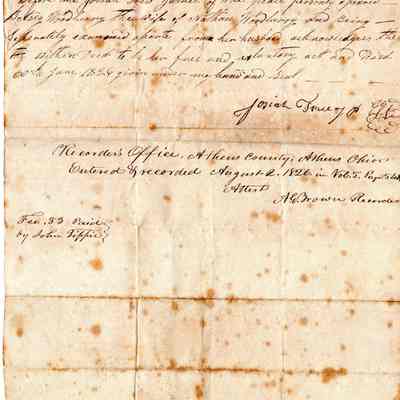 Before me Josiah True Justice of the peace personly appeared
Betsey Woodbury the wife of Nathan Woodbury and being
Seperately examined aparte from her husband acknowledges the
within Deed to be her free and voluntary act and Deed
June 1826 given under my hand and Seal
Josiah True J P
Recorder's Office, Athens County, Athens Ohio
Entered & recorded August 2, 1826 in Vol. 5, Page
Attest
A G Brown Recorder
Fee .33 Paid
by John Tippie